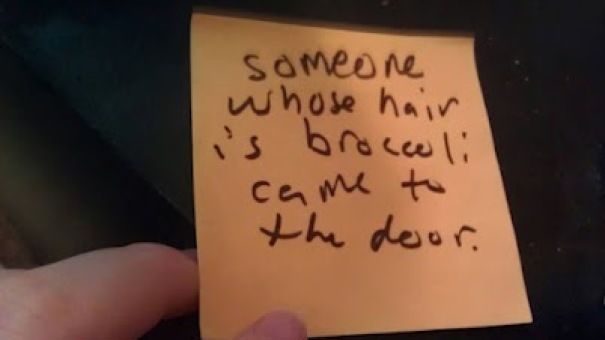 someone
whose hair
is broccoli
came to
the door.